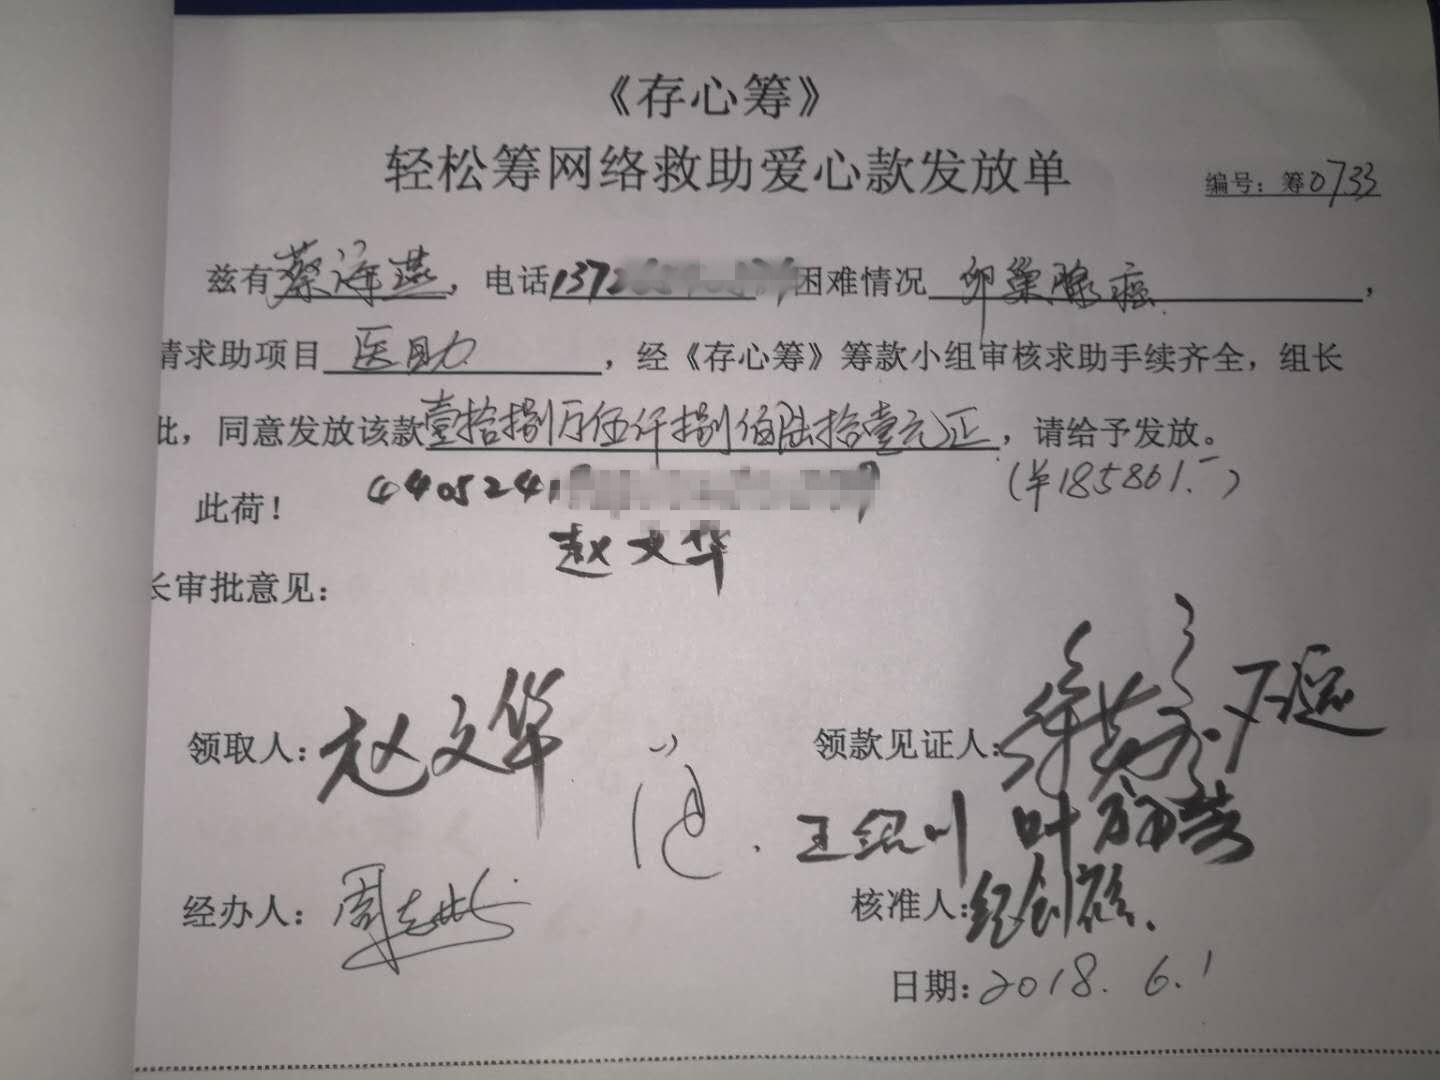 《存心筹》
轻松筹网络救助爱心款发放单
编号：筹0733
兹有蔡海燕，电话1372 困难情况 卵巢腺癌，
请求助项目 医助，经《存心筹》筹款小组审核求助手续齐全，组长
批，同意发放该款壹拾捌万伍仟捌佰陆拾壹元正，请给予发放。
(¥185861.-)
此荷！ 440524
赵文华
长审批意见：
领取人：赵文华 领款见证人：
王绍川 叶
经办人：周 核准人：
日期：2018.6.1